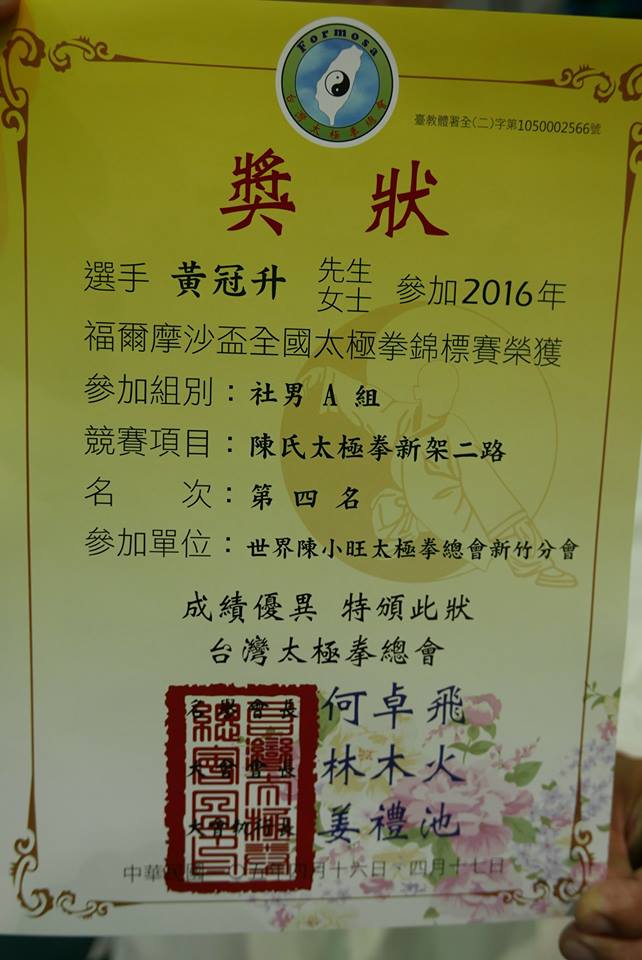 Formosa
台灣太極拳總會
臺教體署全(二)字第1050002566號
獎 狀
選手 黃冠升 先生 女士 參加2016年
福爾摩沙盃全國太極拳錦標賽榮獲
參加組別：社男 A 組
競賽項目：陳氏太極拳新架二路
名 次：第 四 名
參加單位：世界陳小旺太極拳總會新竹分會
成績優異 特頒此狀
台灣太極拳總會
名譽會長 何卓飛
大會會長 林木火
大會執行長 姜禮池
中華民國一〇五年四月十六日、四月十七日